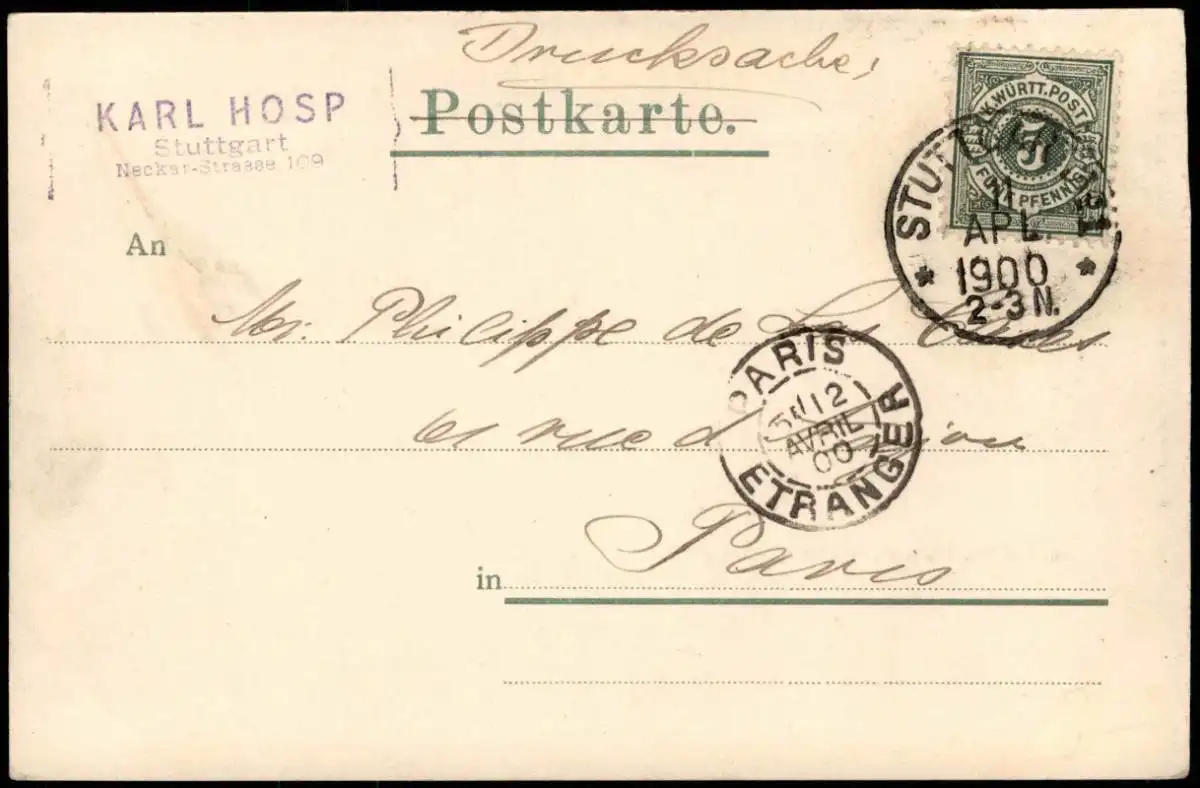 Drucksache,
KARL HOSP
Stuttgart
Neckar-Strasse 109
Postkarte.
K. WÜRTT. POST
5
FÜNF PFENNIG
STUTTGART
11
APL.
1900
2-3 N.
An
Mr. Philippe de Las Cases
PARIS
12
AVRIL
00
ETRANGER
61 rue d'
Paris
in